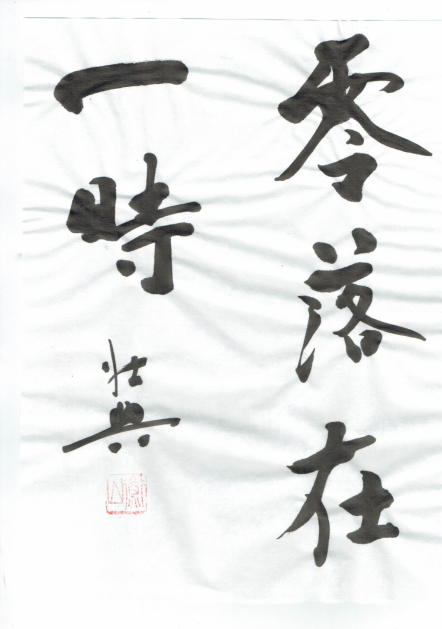 零落在
一時
壮典